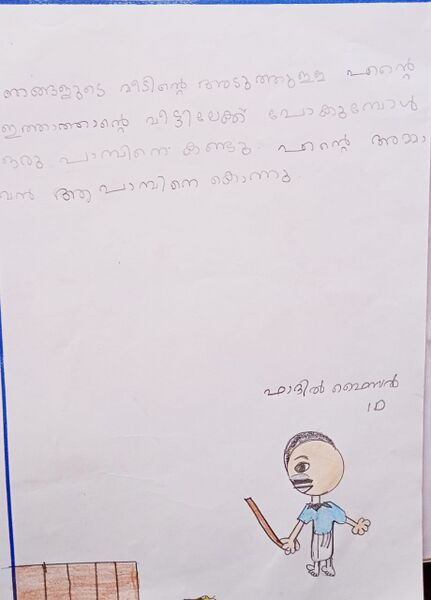 ഞങ്ങളുടെ വീടിന്റെ അടുത്തുള്ള എന്റെ
ഇത്താത്താന്റെ വീട്ടിലേക്ക് പോകുമ്പോൾ
ഒരു പാമ്പിനെ കണ്ടു. എന്റെ അമ്മാ
വൻ ആ പാമ്പിനെ കൊന്നു.
ഫാദിൽ ഫൈസൽ
1D